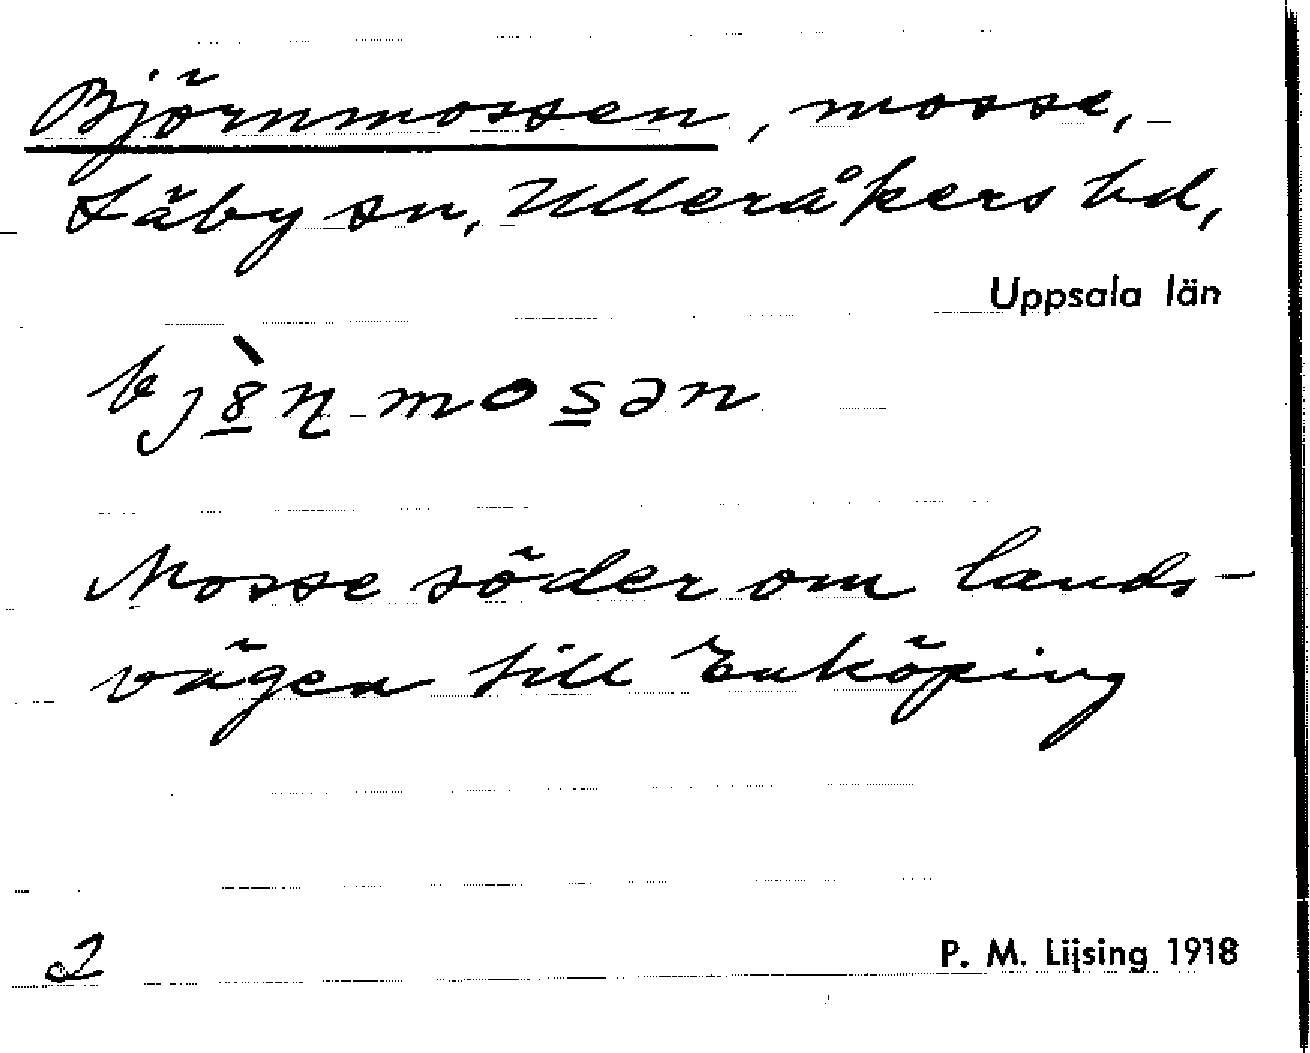 Björnmossen, mosse,
Läby sn, Ulleråkers hd,
Uppsala län
Mosse söder om lands-
vägen till Enköping
P. M. Lijsing 1918